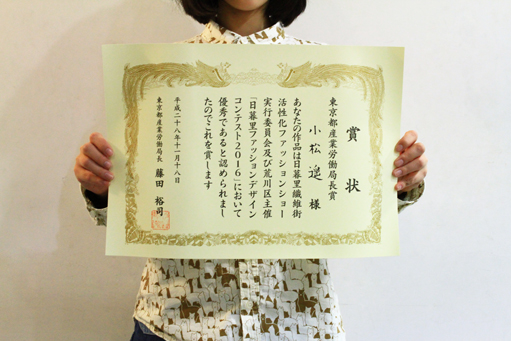 賞状
東京都産業労働局長賞
小松 遥 様
あなたの作品は日暮里繊維街
活性化ファッションショー
実行委員会及び荒川区主催
「日暮里ファッションデザイン
コンテスト2016」において
優秀であると認められまし
たのでこれを賞します
平成二十八年十一月十八日
東京都産業労働局長 藤田 裕司